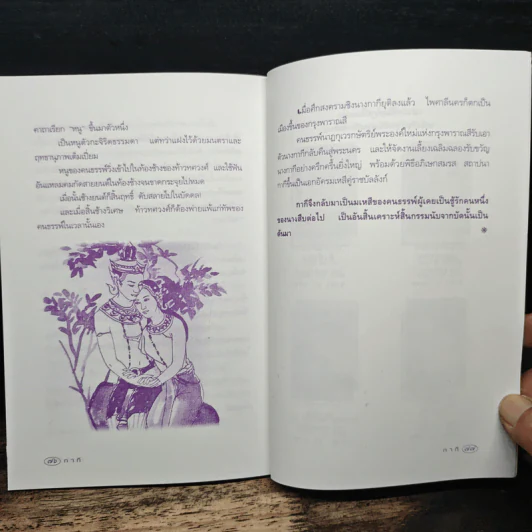 คาถาเรียก "หนู" ขึ้นมาตัวหนึ่ง
เป็นหนูตัวกะจิริดธรรมดา แต่ทว่าแฝงไว้ด้วยมนตราและ
ฤทธานุภาพเต็มเปี่ยม
หนูของคนธรรพ์วิ่งเข้าไปในท้องช้างของท้าวทศวงศ์ และใช้ฟัน
อันแหลมคมกัดสายยนต์ในท้องช้างจนขาดกระจุยไปหมด
เมื่อนั้นช้างยนต์ก็สิ้นฤทธิ์ ดับสลายไปในบัดดล!
และเมื่อสิ้นช้างวิเศษ ท้าวทศวงศ์ก็ต้องพ่ายแพ้แก่ทัพของ
คนธรรพ์ในเวลานั้นเอง
๗๖ กากี
เมื่อศึกสงครามชิงนางกากียุติลงแล้ว ไพศาลีนครก็ตกเป็น
เมืองขึ้นของกรุงพาราณสี
คนธรรพ์นาฏกุเวรกษัตริย์พระองค์ใหม่แห่งกรุงพาราณสีรับเอา
ตัวนางกากีกลับคืนสู่พระนคร และให้จัดงานเลี้ยงเฉลิมฉลองรับขวัญ
นางกากีอย่างครึกครื้นยิ่งใหญ่ พร้อมด้วยพิธีอภิเษกสมรส สถาปนา
กากีขึ้นเป็นเอกอัครมเหสีคู่ราชบัลลังก์
กากีจึงกลับมาเป็นมเหสีของคนธรรพ์ผู้เคยเป็นชู้รักคนหนึ่ง
ของนางสืบต่อไป เป็นอันสิ้นเคราะห์สิ้นกรรมนับจากบัดนั้นเป็น
ต้นมา
กากี ๗๗